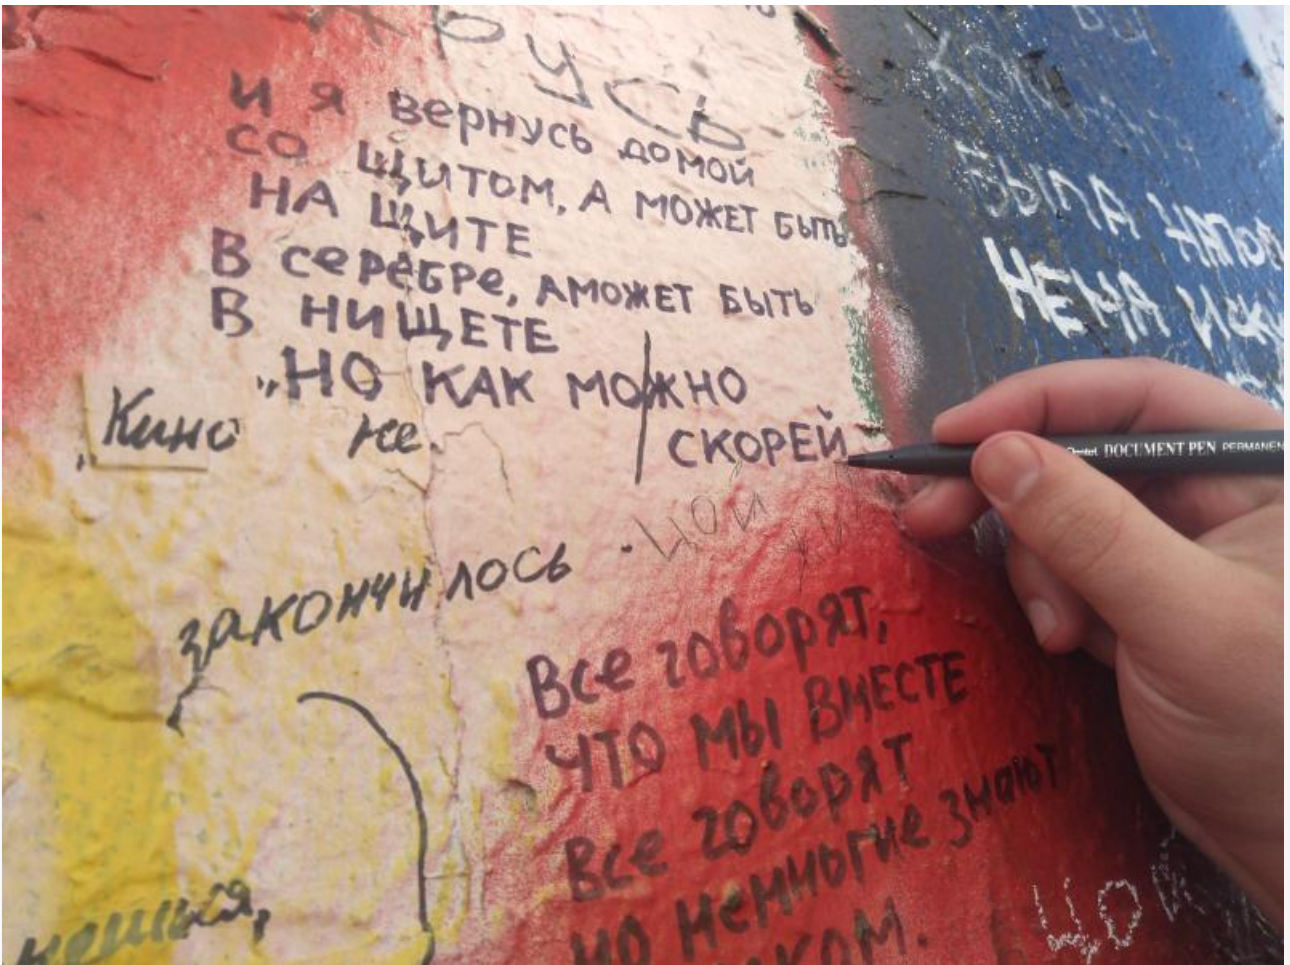 УСЬ
и я вернусь домой
со щитом, а может быть
на щите
В серебре, аможет быть
В нищете
„Но как можно
скорей
Кино не
закончилось
Цой
Все говорят,
что мы вместе
Все говорят
но немногие знают
Цой
была
нема
DOCUMENT PEN PERMANEN